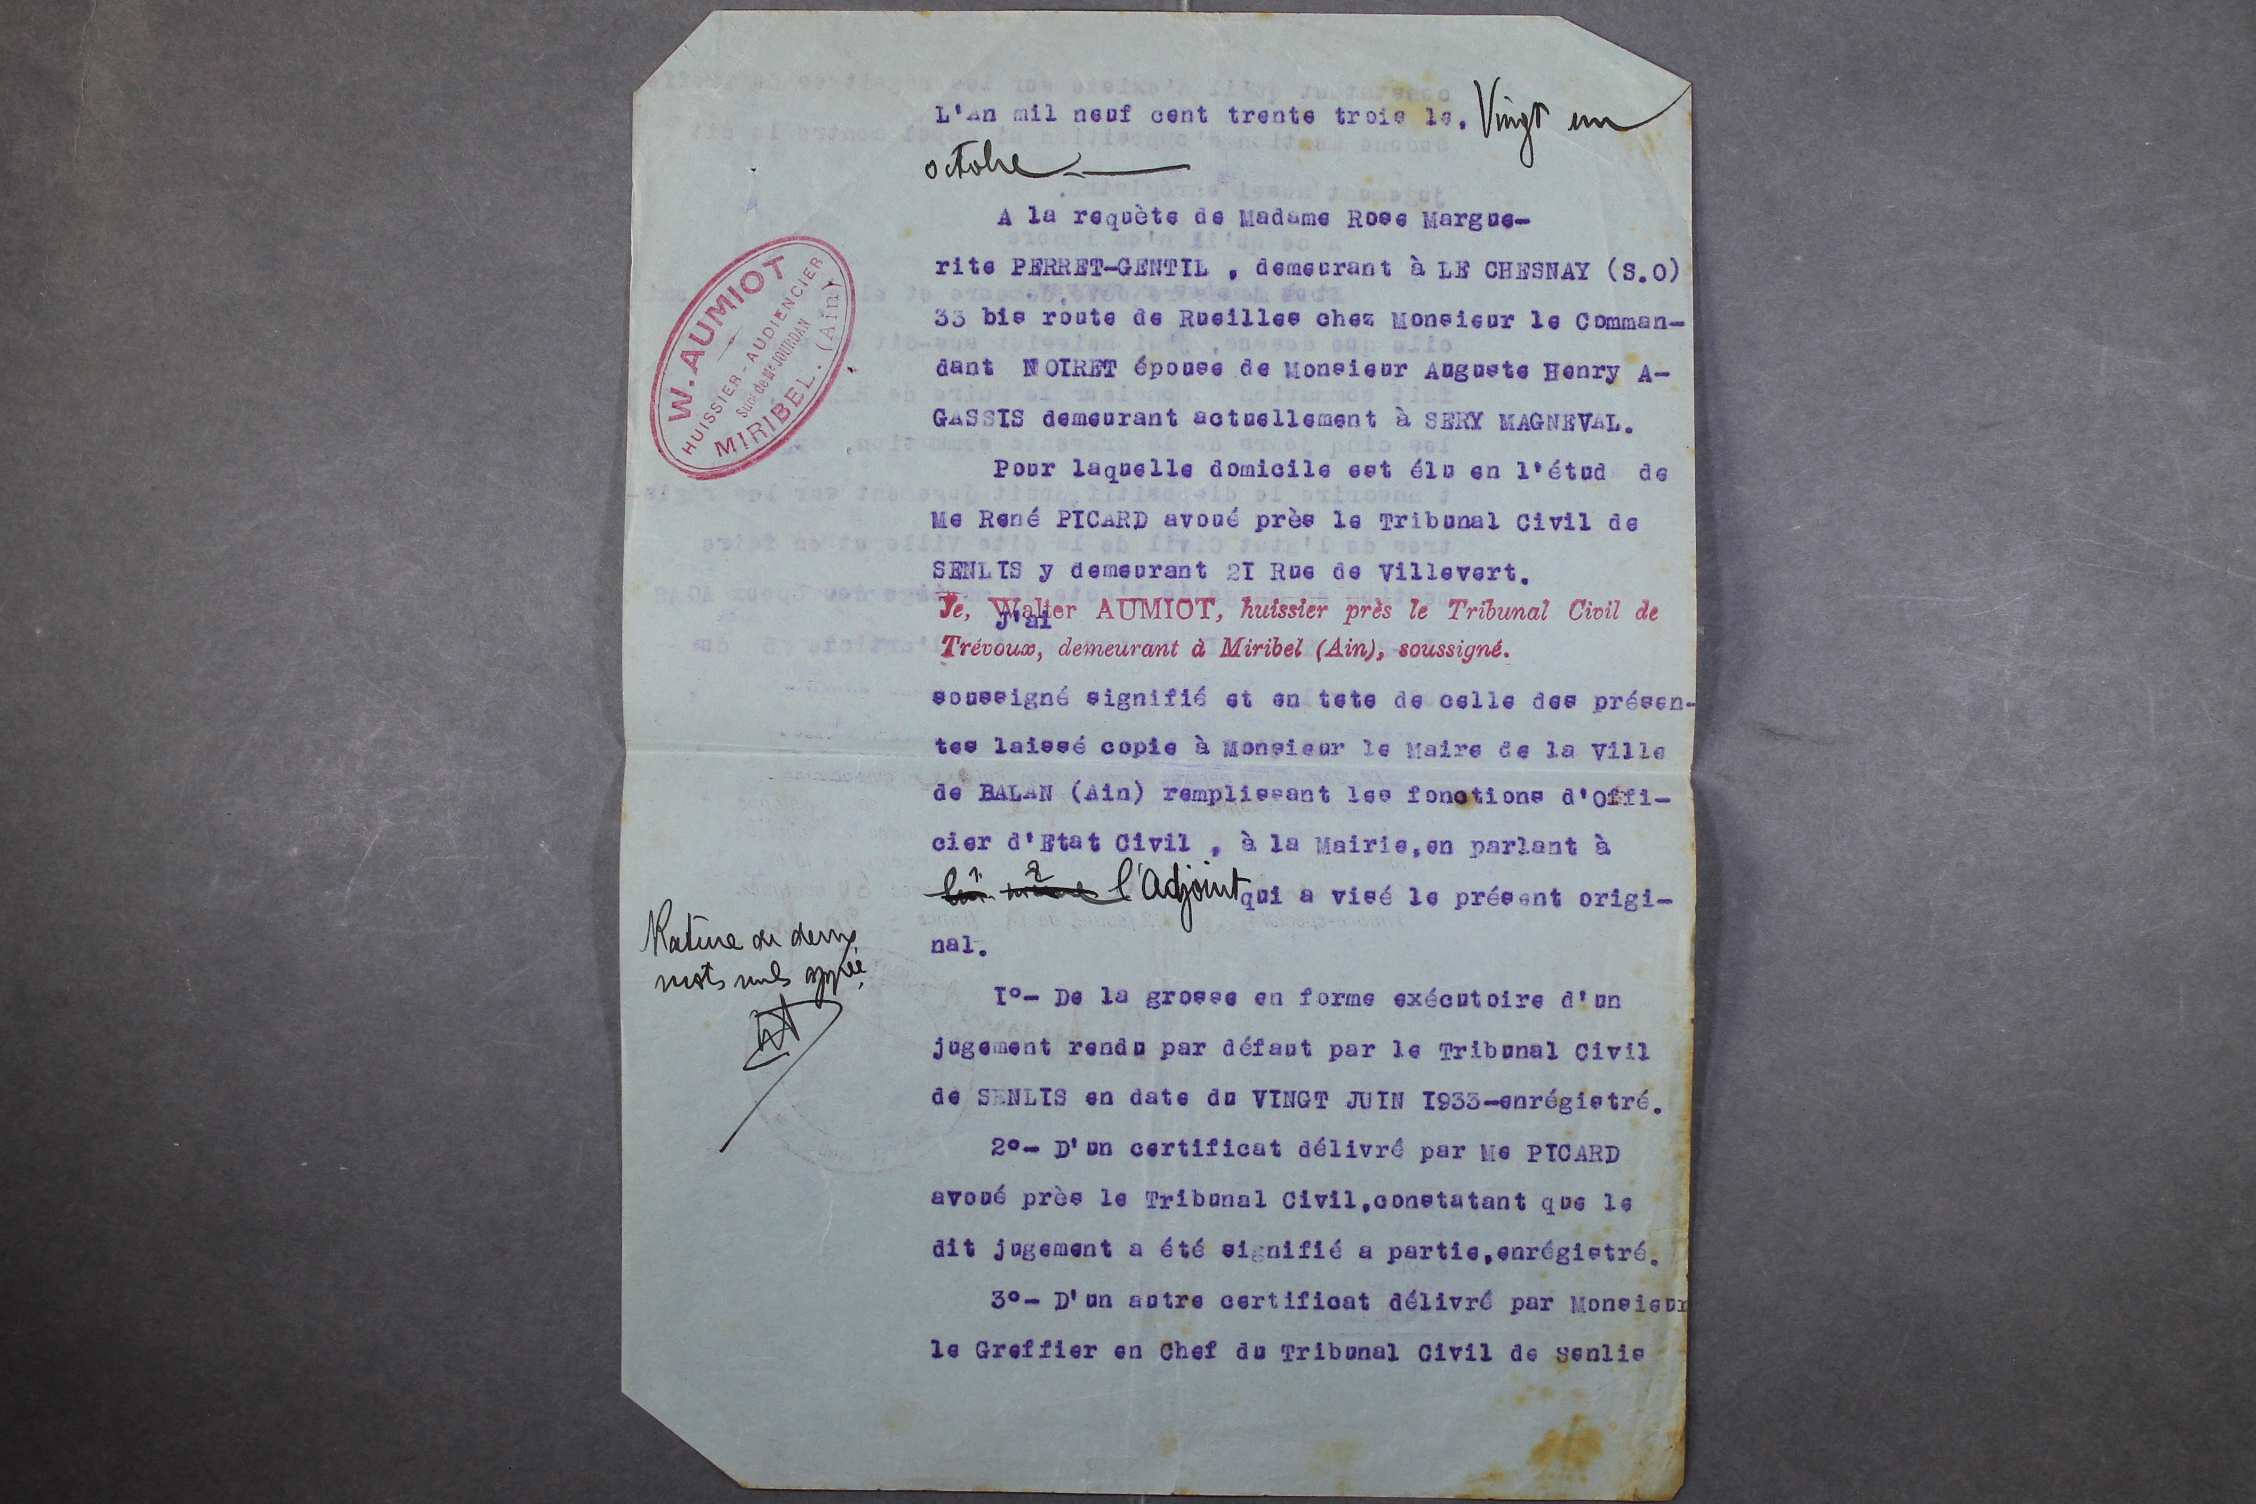 L'An mil neuf cent trente trois le, Vingt un
octobre
A la requète de Madame Rose Margue-
rite PERRET-GENTIL , demeurant à LE CHESNAY (S.O)
33 bis route de Rueilles chez Monsieur le Comman-
dant NOIRET épouse de Monsieur Auguste Henry A-
GASSIS demeurant actuellement à SERY MAGNEVAL.
Pour laquelle domicile est élu en l'étud de
Me René PICARD avoué près le Tribunal Civil de
SENLIS y demeurant 2I Rue de Villevert.
Je, Walter AUMIOT, huissier près le Tribunal Civil de
J'ai
Trévoux, demeurant à Miribel (Ain), soussigné.
soussigné signifié et en tete de celle des présen-
tes laissé copie à Monsieur le Maire de la Ville
de BALAN (Ain) remplissant les fonctions d'Offi-
cier d'Etat Civil , à la Mairie,en parlant à
1 2 l'Adjoint qui a visé le présent origi-
nal.
I°- De la grosse en forme exécutoire d'un
jugement rendu par défaut par le Tribunal Civil
de SENLIS en date du VINGT JUIN I933-enrégistré.
2°- D'un certificat délivré par Me PICARD
avoué près le Tribunal Civil,constatant que le
dit jugement a été signifié a partie,enrégistré.
3°- D'un autre certificat délivré par Monsieur
le Greffier en Chef du Tribunal Civil de Senlis
W. AUMIOT
HUISSIER-AUDIENCIER
Sucr de Me JOURDAN
MIRIBEL. (Ain)
Rature de deux
mots nuls